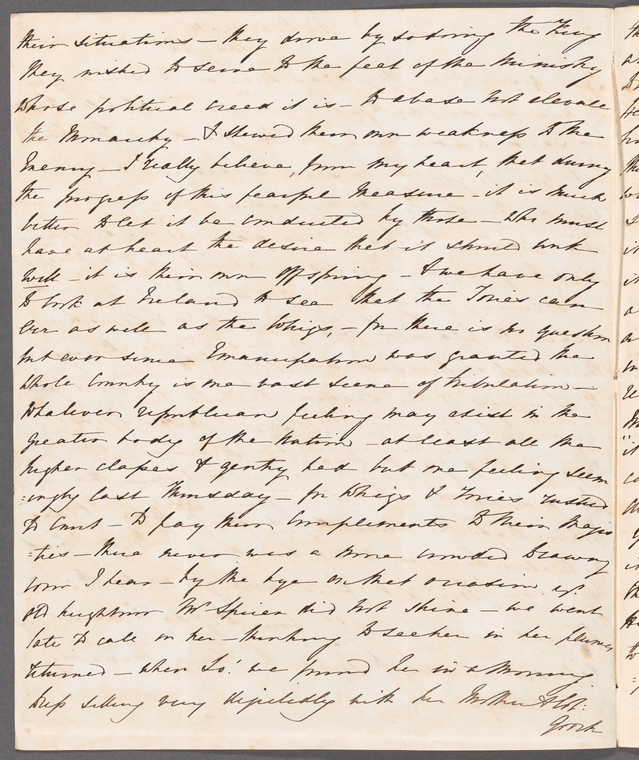 their situations – they drove by so doing the King
they wished to serve to the feet of the Ministry
whose political creed it is – to abase not elevate
the Monarchy – & shewed their own weakness to the
Enemy – I really believe, from my heart, that during
the progress of this fearful Measure – it is much
better to let it be conducted by those – who must
have at heart the desire that it should work
well – it is their own offspring – & we have only
to look at Ireland to see that the Tories can
err as well as the Whigs, – for there is no question
but ever since Emancipation was granted the
whole Country is one vast scene of tribulation –
Whatever republican feeling may exist in the
greater body of the Nation – at least all the
higher classes & gentry had but one feeling seem
=ingly last Thursday – for Whigs & Tories rushed
to Court – to pay their Complements to their Majes
=ties – there never was a more crowded Drawing
room I hear – by the bye on that occasion yr.
old neighbour Mrs Spicer did not shine – we went
late to call on her – thinking to see her in her plumes
returned – when Lo! we found her in a Morning
dress sitting very dejectedly with her Mother & Col:
Gooch